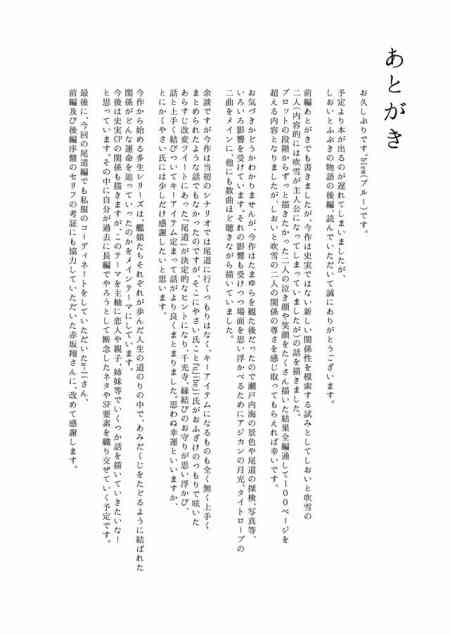 あとがき
お久しぶりです。blew(ブルー)です。
予定より本が出るのが遅れてしまいましたが、
しおいとふぶきの物語の後編、読んでいただいて誠にありがとうございます。
前編あとがきでも書きましたが、今作は史実ではない新しい関係性を模索する試みとしてしおいと吹雪の
二人(内容的には吹雪が主人公になってしまっていましたが)の話を描きました。
プロットの段階からずっと描きたかった二人の泣き顔や笑顔をたくさん描いた結果全編通して100ページを
超える内容となりましたが、しおいと吹雪の二人の関係の尊さを感じ取ってもらえれば幸いです。
お気づきかどうかわかりませんが、今作はたまゆらを観た後だったので瀬戸内海の景色や尾道の探検、写真等、
いろいろ影響を受けています。それの影響も受けつつ場面を思い浮かべるためにアジカンの月光、タイトロープの
二曲をメインに、他にも数曲ほど聴きながら描いていました。
余談ですが今作は当初のシナリオでは尾道に行くつもりはなくキーアイテムになるものも全く無く上手く
まとめられたような話でもなかったのですが、そこにやさい氏こと
氏がおふざけのつもりで呟いた
あらすじ改変ツイートにあった「尾道」が決定的なヒントになり、千光寺、縁結びのお守りが思い浮かび、
話と上手く結びついてキーアイテム定まって話がより良くまとまりました。思わぬ幸運といいますか、
とにかくやさい氏には少しだけ感謝したいと思います。
今作から始める多生シリーズは、艦娘たちそれぞれが歩んだ人生の道のりの中で、あみだくじをたどるように結ばれた
関係がどんな運命を辿っていったのかをメインテーマにしています。
今後は史実CPの関係も描きますが、このテーマを主軸に恋人や親子、姉妹等でいくつか話を描いていきたいな!
と思っています。その中に自分が過去に長編でやろうとして断念したネタやSF要素を織り交ぜていく予定です。
最後に、今回の尾道編でも私服のコーディネートをしていただいた
さん、
前編及び後編序盤のセリフの考証にも協力していただいた赤坂翔さんに、改めて感謝します。